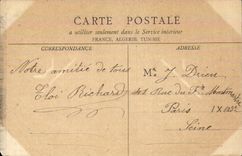 CARTE POSTALE
a utiliser seulement dans le Service intérieur
FRANCE, ALGERIE, TUNISIE
CORRESPONDANCE
ADRESSE
Notre amitié de tous
Eloi Richard
Mr J. Drion
Rue du Fg
Paris
Seine